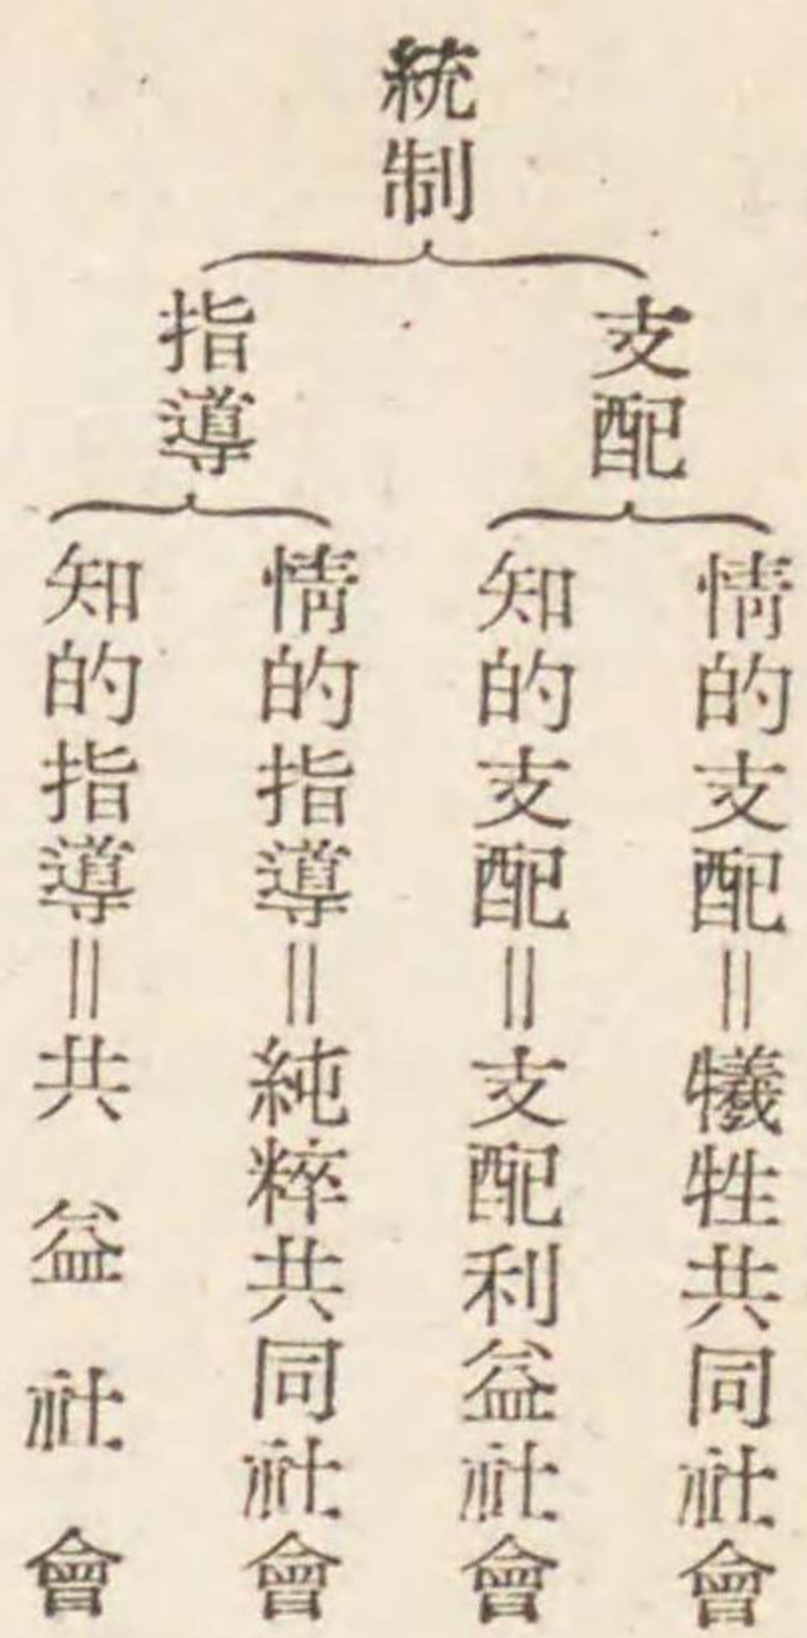 統制
支配
情的支配＝犧牲共同社會
知的支配＝支配利益社會
指導
情的指導＝純粹共同社會
知的指導＝共益社會